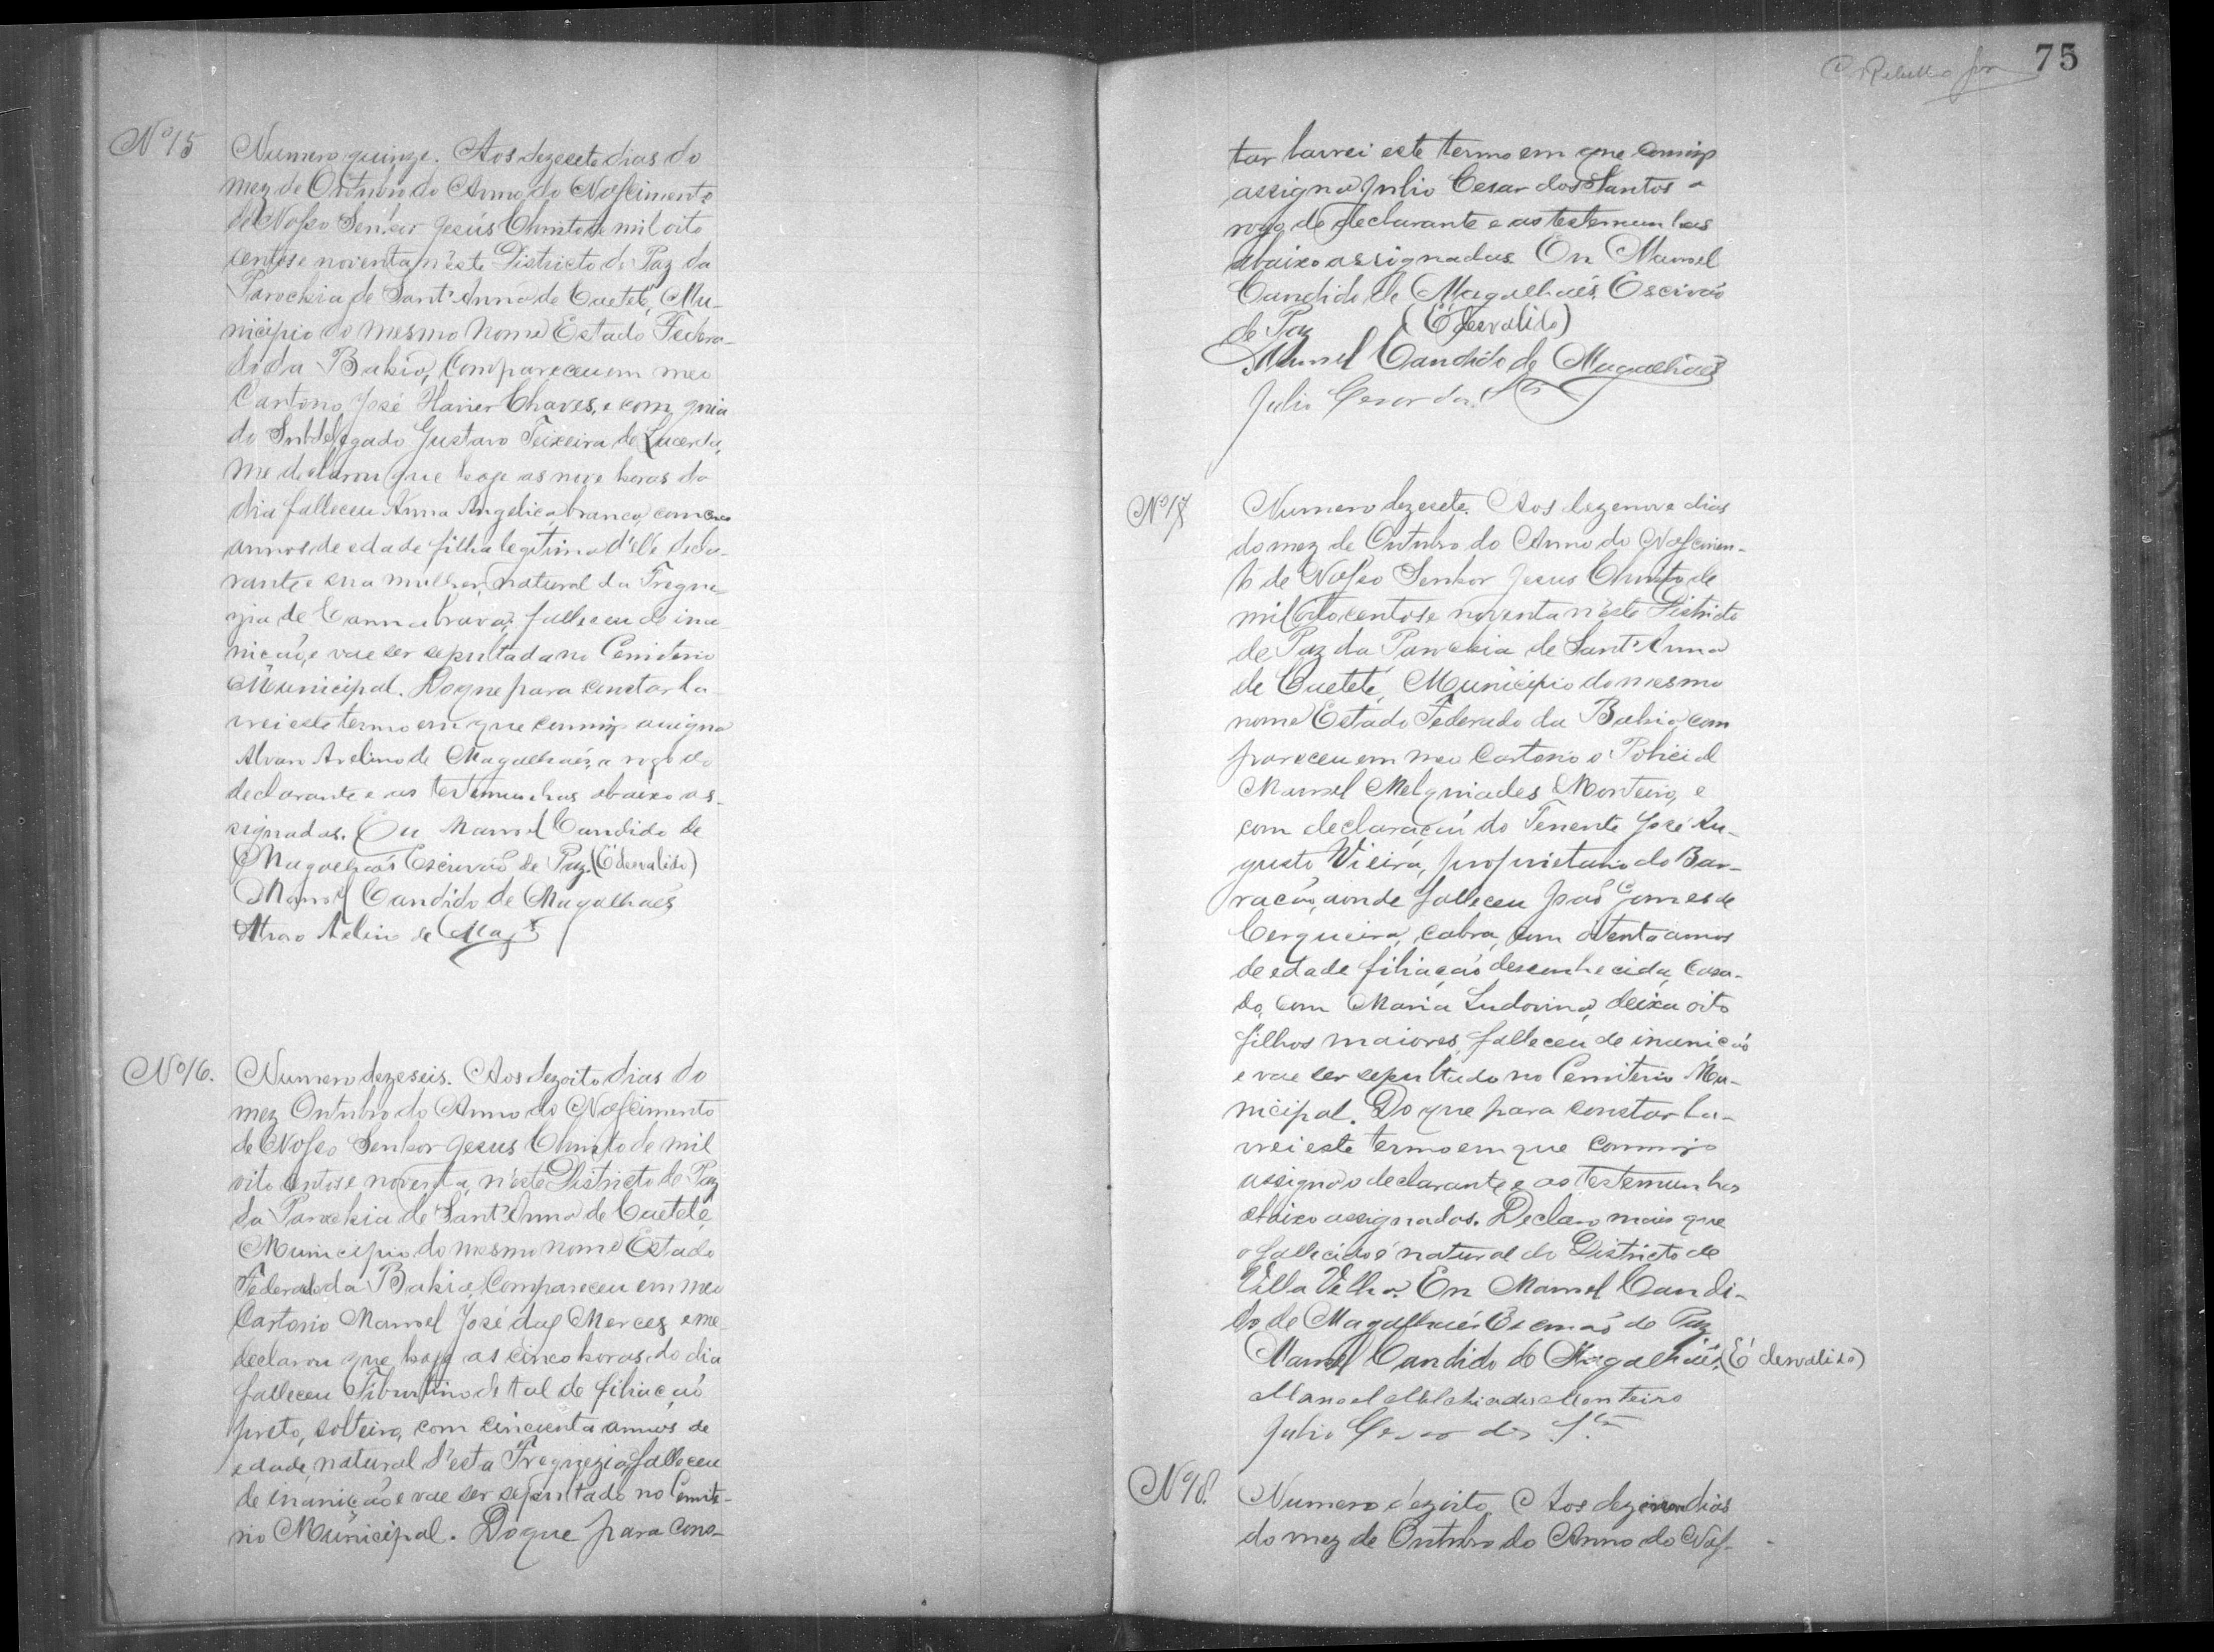 Nº 15
Numero quinze. Aos dezesete dias do
mez de Outubro do Anno do Nascimento
de Nosso Senhor Jesús Christo de mil oito
centos e noventa, n'este Districto de Paz da
Parochia de Sant'Anna de Caeteté, Mu-
nicipio do mesmo nome Estado Federa-
do da Bahia, Compareceu em meu
Cartorio José Xavier Chaves, e com guia
do Subdelegado Gustavo Teixeira de Lacerda,
me declarou que hoje as nove horas do
dia falleceu Anna Angelica, branca, com cinco
annos de edade filha legitima d'elle decla-
rante e sua mulher, natural da Fregue-
zia de Canna brava, falleceu de ina-
nição, e vae ser sepultada no Cemiterio
Municipal. Do que para constar la-
vrei este termo em que commigo assigna
Alvaro Avelino de Magalhaés, a rogo do
declarante e as testemunhas abaixo as-
signadas. Eu Manoel Candido de
Magalhaés Escrivaõ de Paz. (É desvalido)
Manoel Candido de Magalhaés
Alvaro Avelino de Mag.es
Nº 16.
Numero dezeseis. Aos dezoito dias do
mez Outubro do Anno do Nascimento
de Nosso Senhor Jesus Christo de mil
oito centos e noventa, n'este Districto de Paz
da Parochia de Sant'Anna de Caeteté,
Municipio do mesmo nome Estado
Federado da Bahia, Compareceu em meu
Cartorio Manoel José das Merces, e me
declarou que hoje as cinco horas do dia
falleceu Tiburtino de tal de filiaçaõ
preto, solteiro, com cincoenta annos de
edade, natural d'esta Freguezia, falleceu
de inaniçaõ e vae ser sepultado no Cemite-
rio Municipal. Do que para cons-
75
tar lavrei este termo em que commigo
assigna Julio Cesar dos Santos a
rogo de declarante e as testemunhas
abaixo assignadas. Eu Manoel
Candido de Magalhaés, Escrivaõ
de Paz (É desvalido)
Manoel Candido de Magalhaés
Julio Cesar dos Stos
Nº 17
Numero dezesete. Aos dezenove dias
do mez de Outubro do Anno do Nascimen-
to de Nosso Senhor Jesus Christo de
mil oito centos e noventa n'este Districto
de Paz da Parochia de Sant'Anna
de Caeteté, Municipio do mesmo
nome Estado Federado da Bahia, com
pareceu em meu Cartorio o Policial
Manoel Melquiades Monteiro, e
com declaraçaõ do Tenente José Au-
gusto Vieira, proprietario do Bar-
racaõ, aonde falleceu Joaõ Gomes de
Cerqueira, cabra, com oitenta annos
de edade filiaçaõ desconhecida, casa-
do, com Maria Ludovina, deixa oito
filhos maiores, falleceu de inaniçaõ
e vae ser sepultado no Cemiterio Mu-
nicipal. Do que para constar la-
vrei este termo em que commigo
assigna o declarante e as testemunhas
abaixo assignadas. Declaro mais que
o fallecido é natural do Districto de
Villa Velha. Eu Manoel Candi-
do de Magalhaés Escrivaõ de Paz
Manoel Candido de Magalhaés. (É desvalido)
Manoel Melchiades Monteiro
Julio Cesar dos Stos
Nº 18.
Numero dezoito. Aos dezenove dias
do mez de Outubro do Anno do Nas-